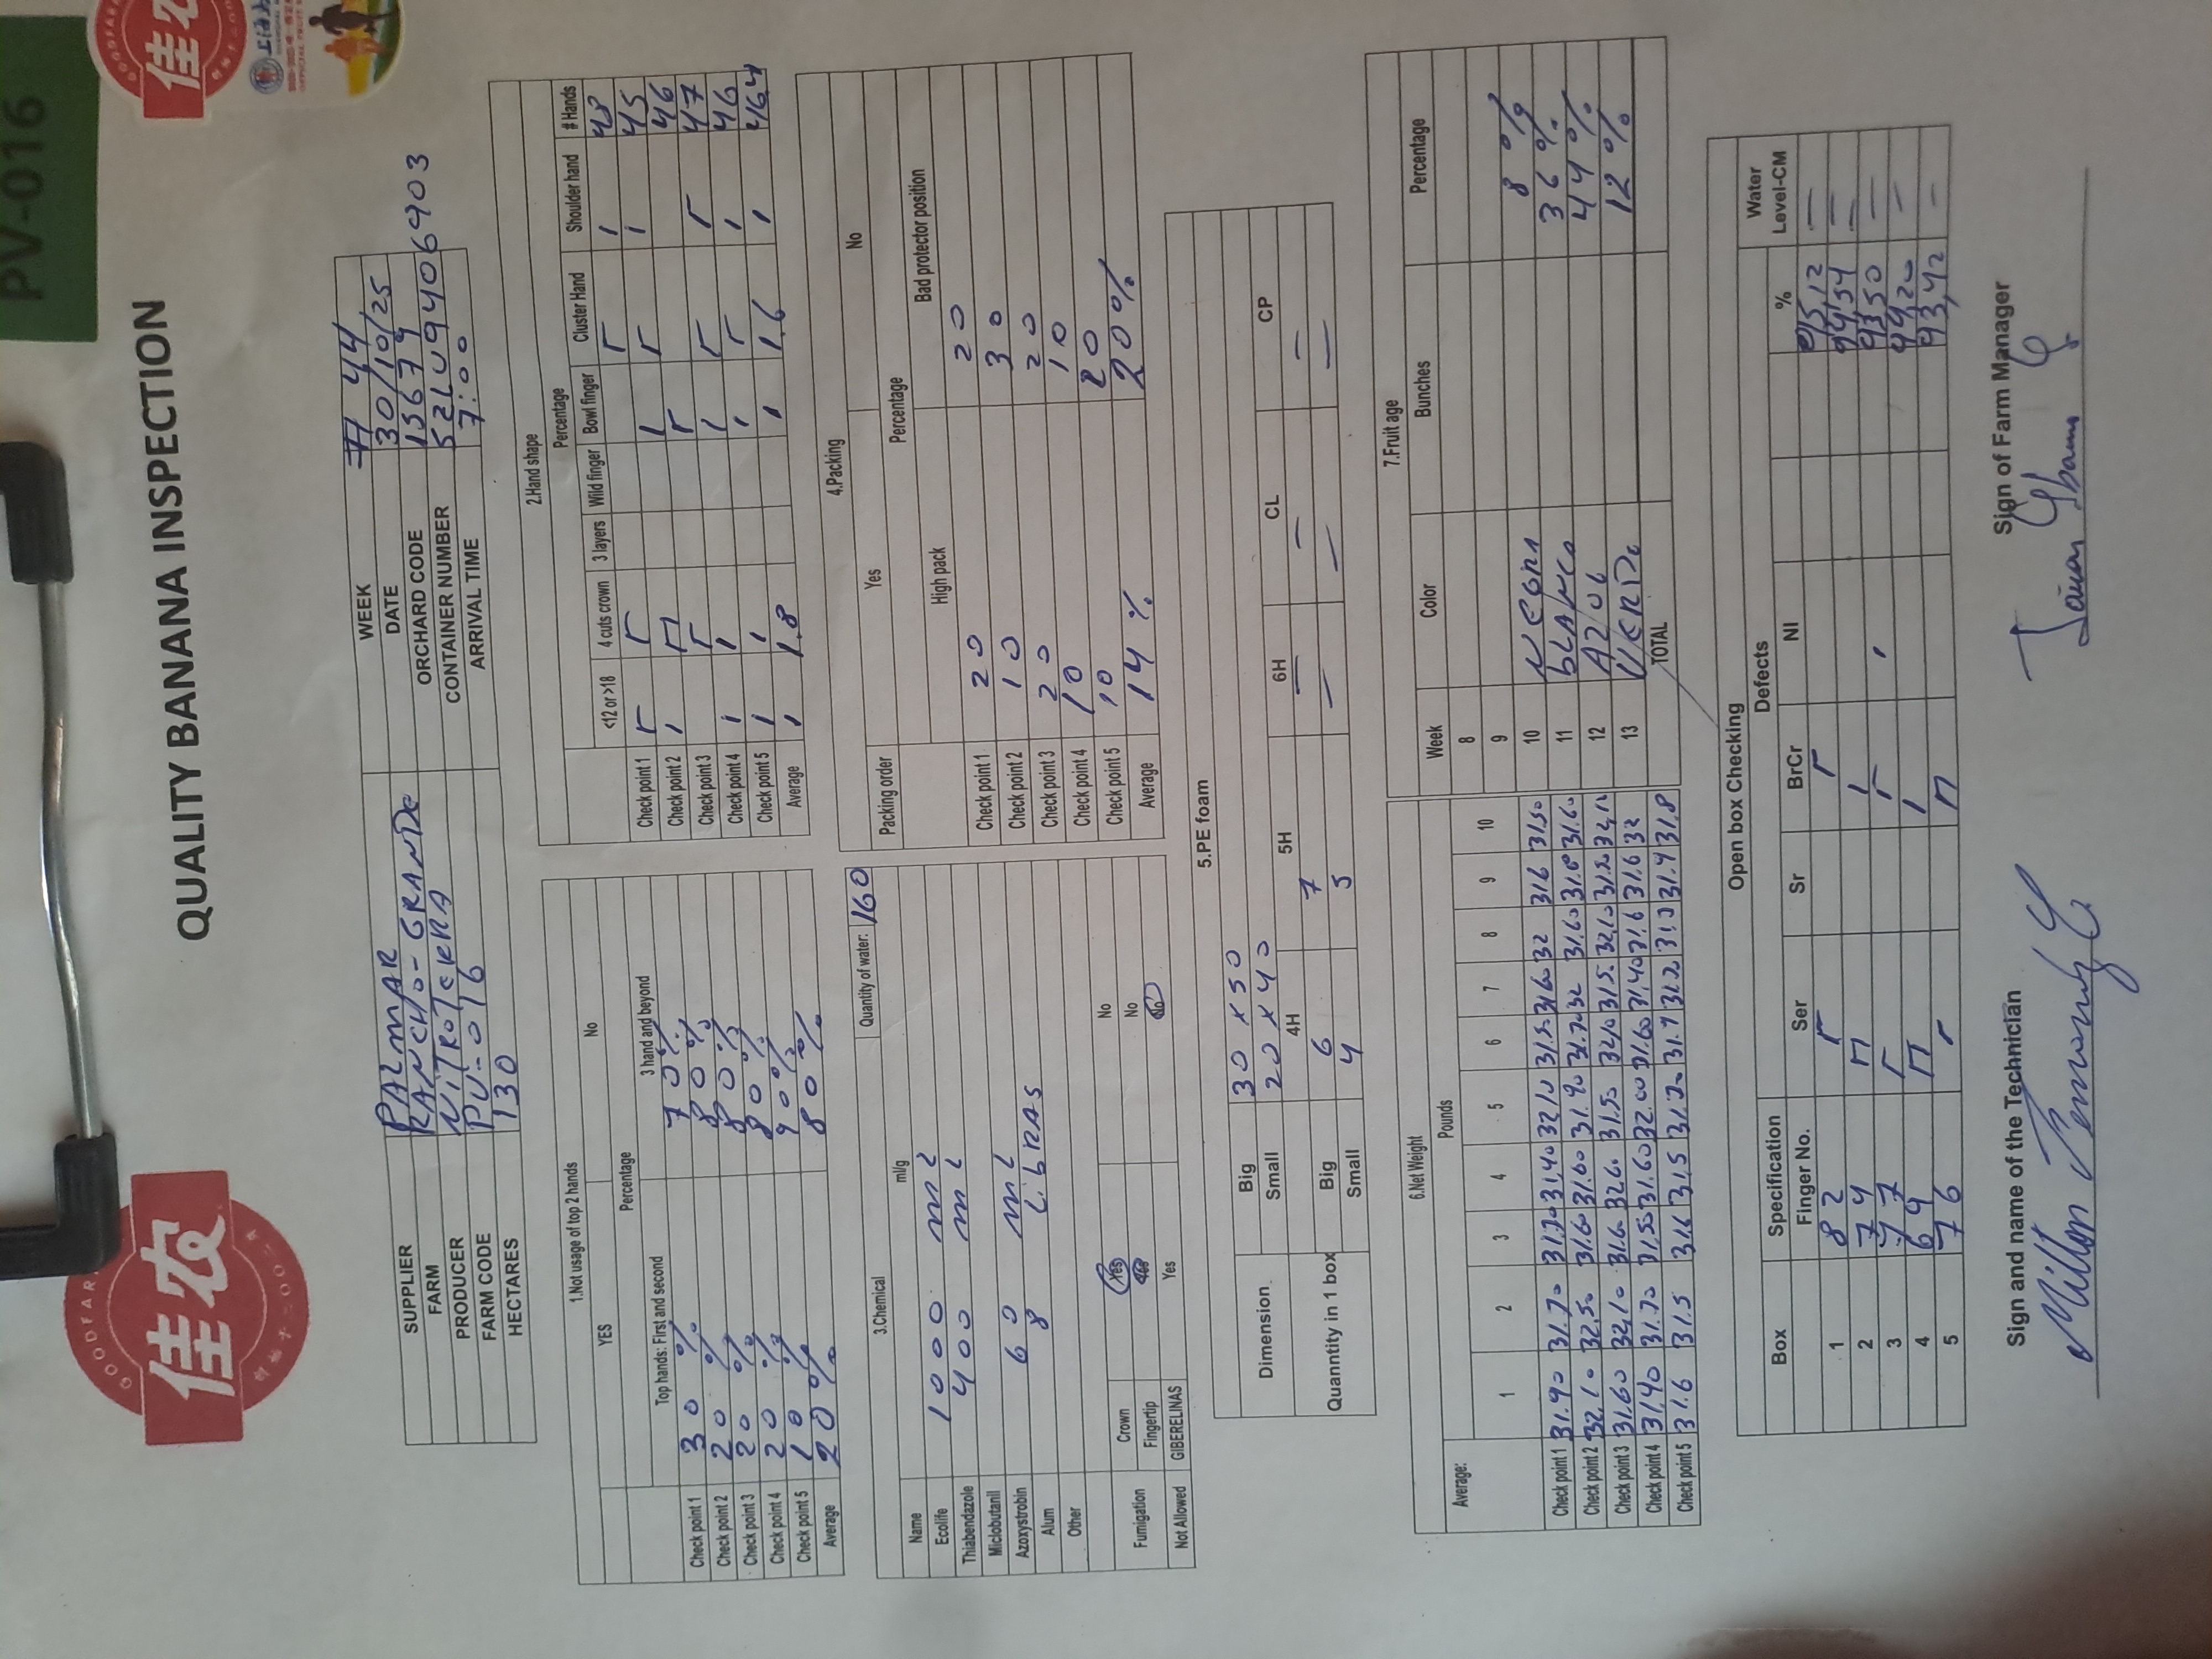 PV-016
GOODFAR
佳农
QUALITY BANANA INSPECTION
SUPPLIER PALMAR WEEK # 44
FARM RANCHO-GRANDE DATE 30/10/25
PRODUCER NITROTERRA ORCHARD CODE 15679
FARM CODE PV-016 CONTAINER NUMBER SZLU9406903
HECTARES 130 ARRIVAL TIME 7:00
1.Not usage of top 2 hands
YES No
Percentage
Top hands: First and second 3 hand and beyond
Check point 1 30 % 70%
Check point 2 20 % 80%
Check point 3 20 % 80%
Check point 4 20 % 80%
Check point 5 10 % 90%
Average 20% 80%
2.Hand shape
Percentage
<12 or >18 4 cuts crown 3 layers Wild finger Bowl finger Cluster Hand Shoulder hand # Hands
Check point 1 48
Check point 2 45
Check point 3 46
Check point 4 47
Check point 5 46
Average 1 1.8 1 1.6 1 46.4
3.Chemical Quantity of water: 160
Name ml/g
Ecolife 1000 ml
Thiabendazole 400 ml
Miclobutanil
Azoxystrobin 60 ml
Alum 8 LibRAS
Other
Fumigation Crown Yes No
Fingertip Yes No
Not Allowed GIBERELINAS Yes No
4.Packing
Packing order Yes No
Percentage
High pack Bad protector position
Check point 1 20 20
Check point 2 10 30
Check point 3 20 20
Check point 4 10 10
Check point 5 10 20
Average 14 % 20%
5.PE foam
Dimension Big 30 x 50
Small 20 x 40
4H 5H 6H CL CP
Quanntity in 1 box Big 6 7 — — —
Small 4 5 — — —
6.Net Weight
Average: Pounds
1 2 3 4 5 6 7 8 9 10
Check point 1 31.90 31.70 31.70 31,40 32.10 31.50 31.60 32 31.6 31.50
Check point 2 32.10 32.50 31.60 31.60 31.90 31.70 32 31.60 31.60
Check point 3 31.60 32,10 31.60 32.60 31.50 32.10 31.50 32,10 31.50 32,10
Check point 4 31,40 31.70 31,50 31.60 32.00 31.60 31,40 31.6 31.6 32
Check point 5 31.6 31.5 31.6 31.5 31.4 31.8
7.Fruit age
Week Color Bunches Percentage
8
9
10 NEGRA 8 %
11 bLANCO 36 %
12 AZUL 44%
13 VERDE 12 %
TOTAL
Open box Checking
Box Specification Defects Water Level-CM
Finger No. Ser Sr BrCr NI %
1 82 95,12 —
2 74 94,54 —
3 77 93,50 —
4 69 94,20 —
5 76 93,42 —
Sign and name of the Technician Sign of Farm Manager
Milton